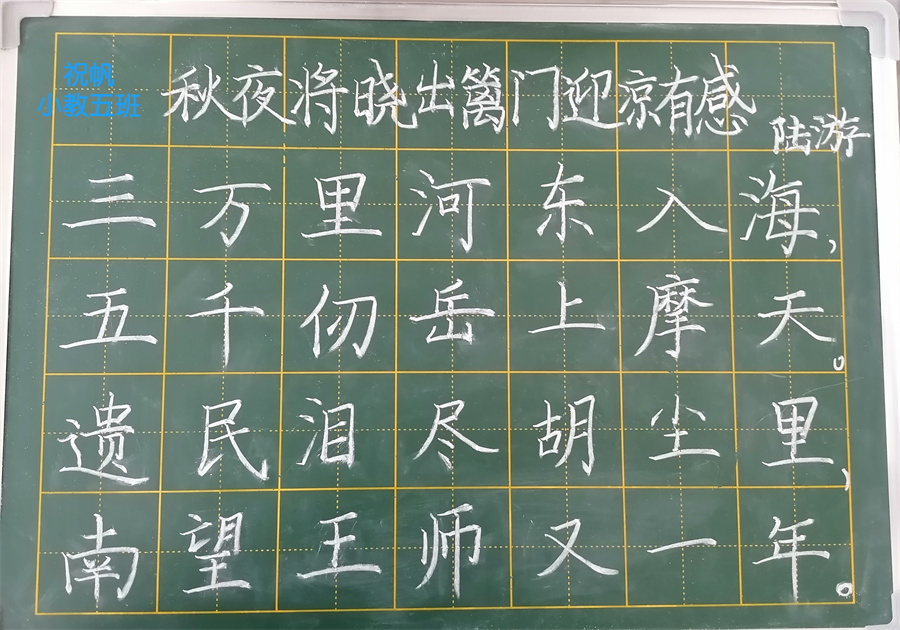 祝帆
小教五班
秋夜将晓出篱门迎凉有感
陆游
三万里河东入海,
五千仞岳上摩天。
遗民泪尽胡尘里,
南望王师又一年。